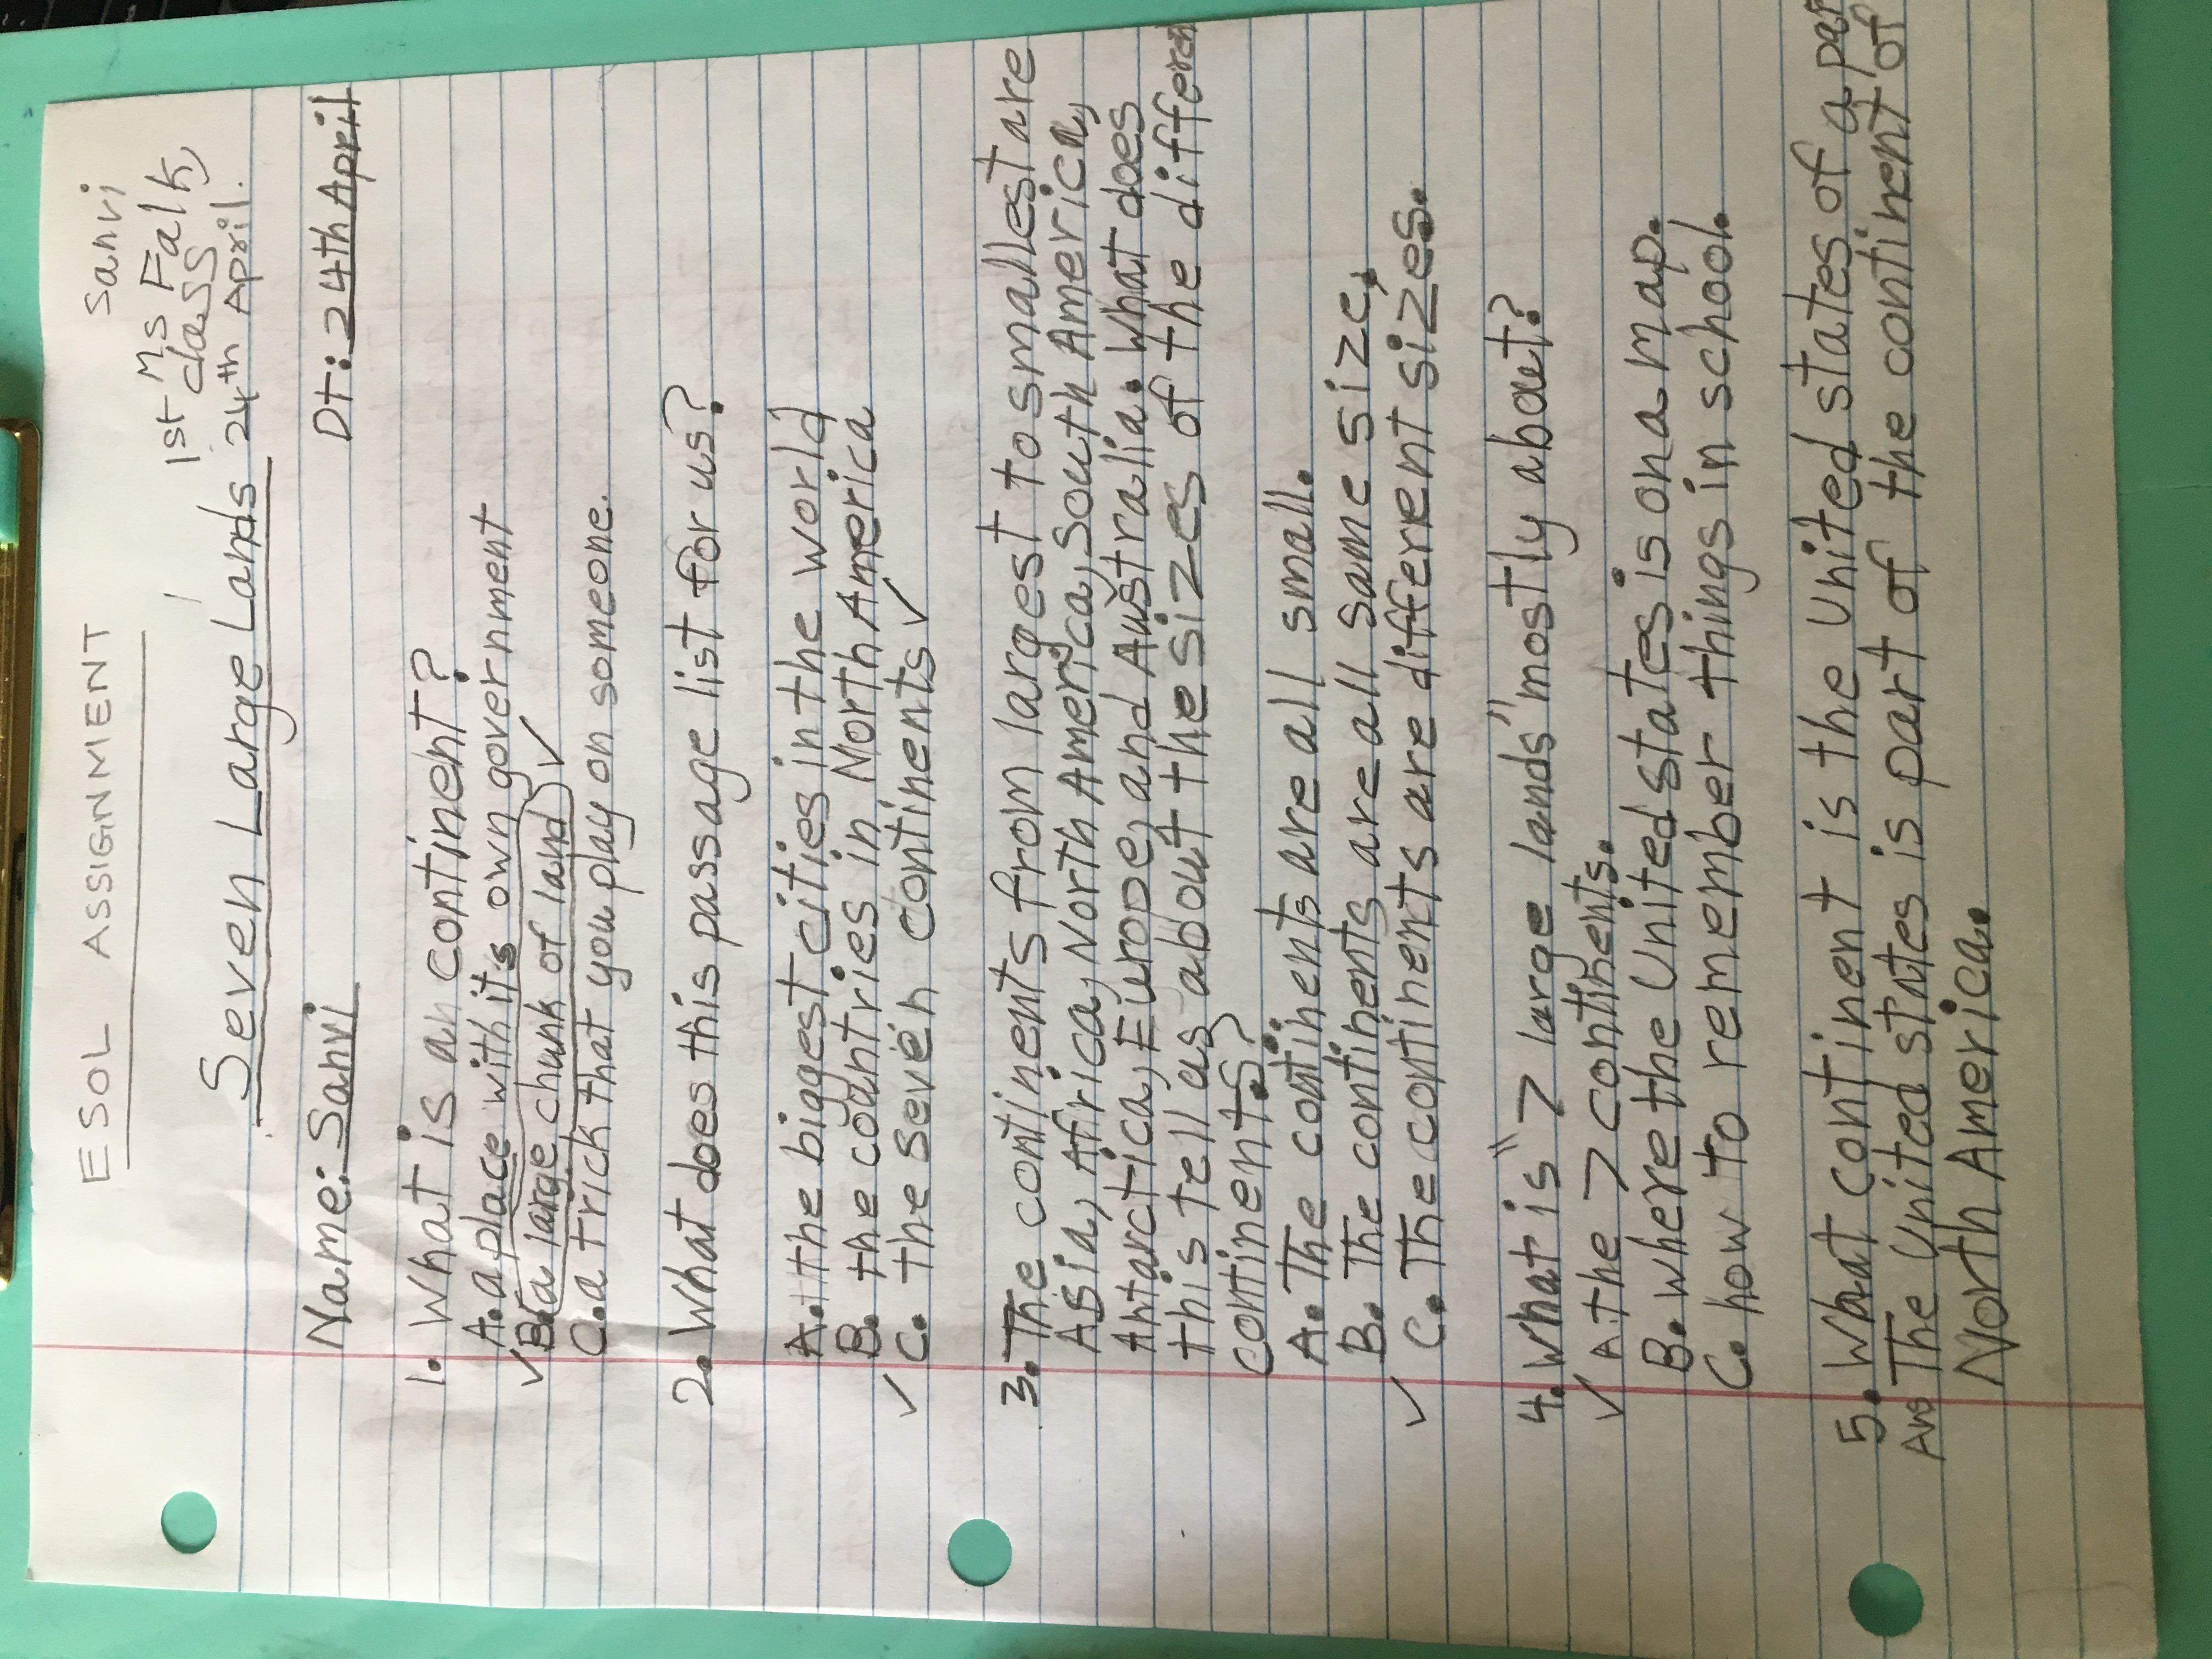 ESOL ASSIGNMENT
Sanvi
1st Ms Falk,
class
24th April.
Seven Large Lands
Name: Sanvi
Dt: 24th April
1. What is an continent?
A. a place with it's own government
✓ B. a large chunk of land ✓
C. a trick that you play on someone.
2. What does this passage list for us?
A. the biggest cities in the world
B. the countries in North America
✓ C. the seven continents ✓
3. The continents from largest to smallest are
Asia, Africa, North America, South America,
Antarctica, Europe, and Australia. What does
this tell us about the sizes of the different
continents?
A. The continents are all small.
B. The continents are all same size.
✓ C. The continents are different sizes.
4. What is "7 large lands" mostly about?
✓ A. the 7 continents.
B. where the United states is on a map.
C. how to remember things in school.
5. What continent is the United states of a par
Ans The United states is part of the continent of
North America.